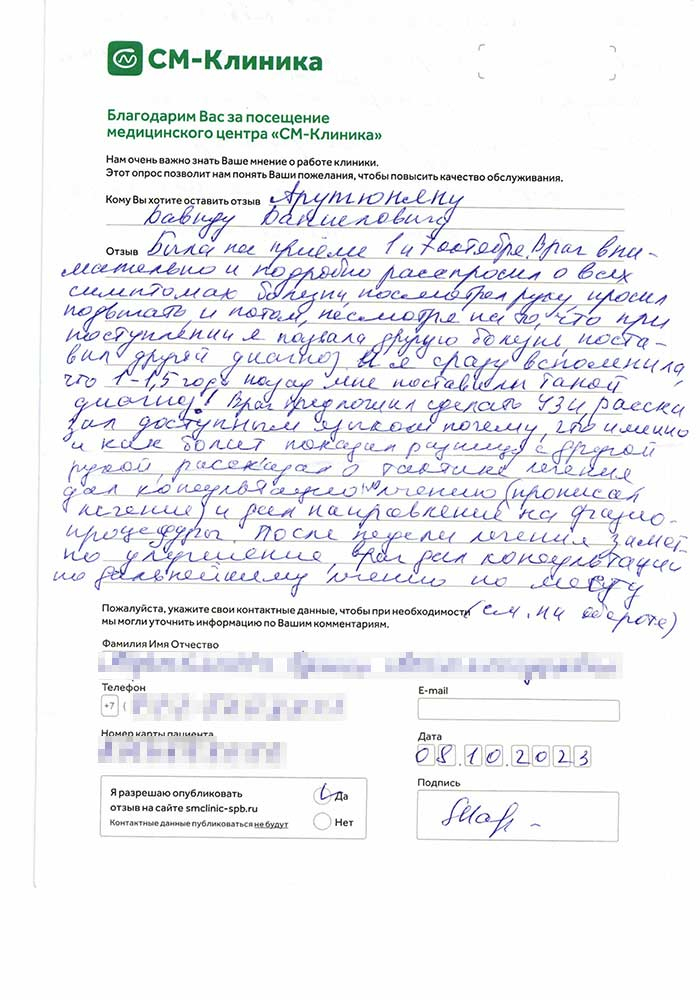 СМ-Клиника
Благодарим Вас за посещение
медицинского центра «СМ-Клиника»
Нам очень важно знать Ваше мнение о работе клиники.
Этот опрос позволит нам понять Ваши пожелания, чтобы повысить качество обслуживания.
Кому Вы хотите оставить отзыв Арутюняну
Давиду Даниеловичу
Отзыв Была на приёме 1 и 7 октября. Врач вни-
мательно и подробно расспросил о всех
симптомах болезни, посмотрел руку, просил
подвигать и потом, несмотря на то, что при
поступлении я назвала другую болезнь, поста-
вил другой диагноз и я сразу вспомнила,
что 1-1,5 года назад мне поставили такой
диагноз! Врач предложил сделать УЗИ, расска
зал доступным языком почему, что именно
и как болит показал разницу с другой
рукой, рассказал о тактике лечения
дал консультацию по лечению (прописал
лечение) и дал направление на физио-
процедуры. После недели лечения замет-
но улучшение, врач дал консультации
по дальнейшему лечению по месту
(см. на обороте)
Пожалуйста, укажите свои контактные данные, чтобы при необходимости
мы могли уточнить информацию по Вашим комментариям.
Фамилия Имя Отчество
Телефон
E-mail
+7 (
Номер карты пациента
Дата
08.10.2023
Я разрешаю опубликовать
отзыв на сайте smclinic-spb.ru
Контактные данные публиковаться не будут
Да
Нет
Подпись